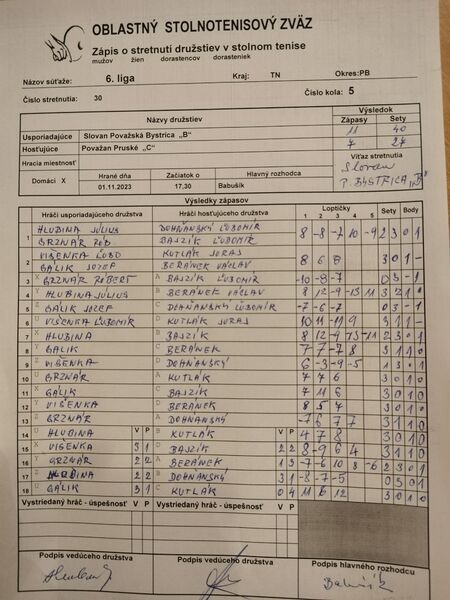 OBLASTNÝ STOLNOTENISOVÝ ZVÄZ
Zápis o stretnutí družstiev v stolnom tenise
mužov žien dorastencov dorasteniek
Názov súťaže: 6. liga Kraj: TN Okres:PB
Číslo stretnutia: 30 Číslo kola: 5
Názvy družstiev Výsledok
Zápasy Sety
Usporiadajúce Slovan Považská Bystrica „B" 11 40
Hosťujúce Považan Pruské „C" 7 27
Hracia miestnosť Víťaz stretnutia
Slovan
Domáci X Hrané dňa Začiatok o Hlavný rozhodca P. BYSTRICA „B"
01.11.2023 17,30 Babušik
Výsledky zápasov
Hráči usporiadajúceho družstva Hráči hosťujúceho družstva Loptičky Sety Body
1 2 3 4 5
1 HLUBINA JÚLIUS DOHŇANSKÝ ĽUBOMÍR 8 -8 -7 10 -9 2 3 0 1
GRZNÁR RÓB. BAJZÍK ĽUBOMÍR
2 VIŠENKA ĽUBO KUTLÁK JURAJ 8 6 8 3 0 1 -
GÁLIK JOZEF BERÁNEK VÁCLAV
3 X GRZNÁR RÓBERT A BAJZÍK ĽUBOMÍR -10 -8 -7 0 3 - 1
4 Y HLUBINA JÚLIUS B BERÁNEK VÁCLAV 8 12 -9 -15 11 3 2 1
5 Z GÁLIK JOZEF C DOHŇANSKÝ ĽUBOMÍR -7 -6 -7 0 3 - 1
6 U VIŠENKA ĽUBOMÍR D KUTLÁK JURAJ 10 11 -11 9 3 1 1 -
7 X HLUBINA B BAJZÍK 8 12 -9 2 3 0 1
8 Y GÁLIK C BERÁNEK 3 1 1 0
9 Z VIŠENKA D DOHŇANSKÝ 6 -3 -9 -5 1 3 0 1
10 U GRZNÁR A KUTLÁK 7 7 6 3 0 1 0
11 X GÁLIK C BAJZÍK 3 0 1 0
12 Y VIŠENKA D BERÁNEK 8 5 7 3 0 1 0
13 Z GRZNÁR A DOHŇANSKÝ 3 1 1 0
14 U HLUBINA V P B KUTLÁK V P 4 7 8 3 0 1 0
15 X VIŠENKA 3 1 D BAJZÍK 2 2 8 -9 6 4 3 1 1 0
16 Y GRZNÁR 2 2 A BERÁNEK 1 3 -7 -6 10 8 -6 2 3 0 1
17 Z HLUBINA 2 2 B DOHŇANSKÝ 3 1 -8 -7 -5 0 3 0 1
18 U GÁLIK 3 1 C KUTLÁK 0 4 11 6 12 3 0 1 0
Vystriedaný hráč - úspešnosť V P Vystriedaný hráč - úspešnosť V P
Podpis vedúceho družstva Podpis vedúceho družstva Podpis hlavného rozhodcu
Babušík